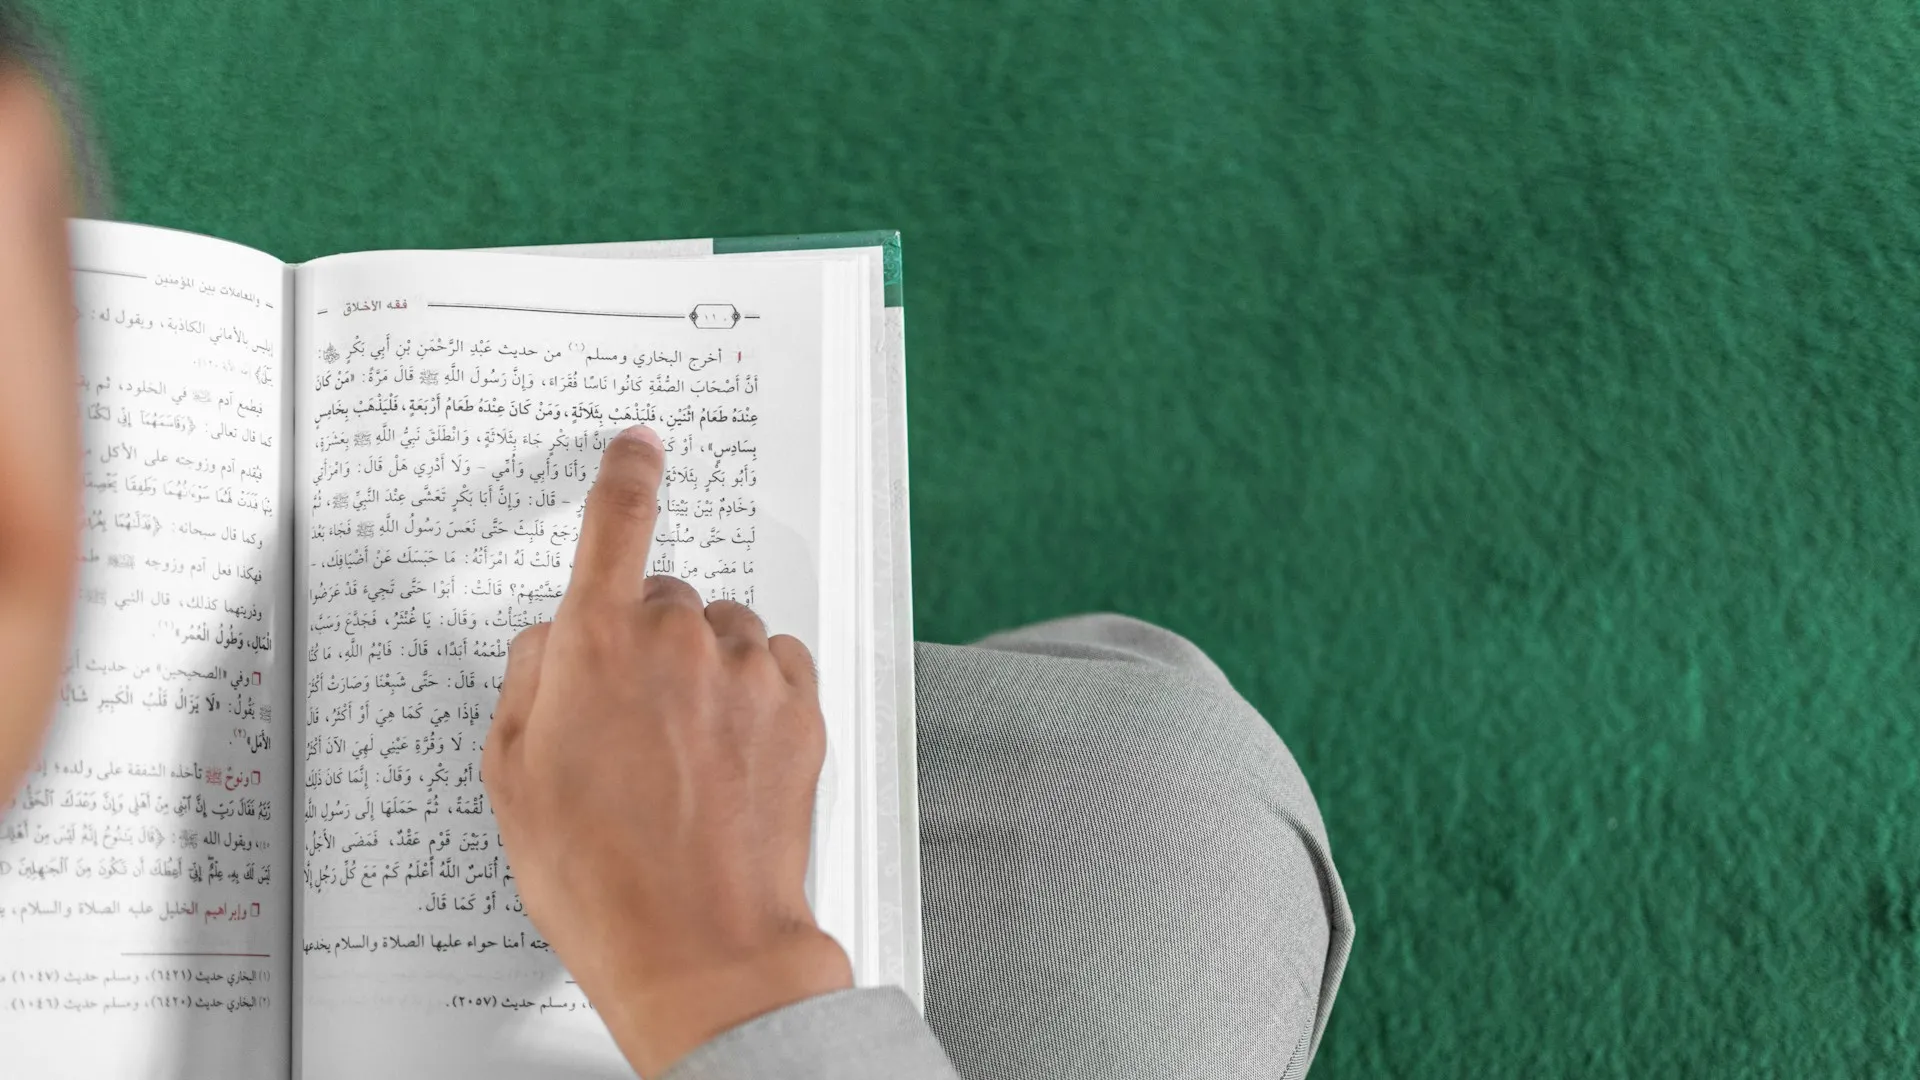 فقه الأخلاق
١١٠
أخرج البخاري ومسلم(١) من حديث عَبْدِ الرَّحْمَنِ بْنِ أَبِي بَكْرٍ :
أَنَّ أَصْحَابَ الصُّفَّةِ كَانُوا نَاسًا فُقَرَاءَ، وَإِنَّ رَسُولَ اللَّهِ ﷺ قَالَ مَرَّةً: «مَنْ كَانَ
عِنْدَهُ طَعَامُ اثْنَيْنِ، فَلْيَذْهَبْ بِثَلَاثَةٍ، وَمَنْ كَانَ عِنْدَهُ طَعَامُ أَرْبَعَةٍ، فَلْيَذْهَبْ بِخَامِسٍ
بِسَادِسٍ»، أَوْ وَإِنَّ أَبَا بَكْرٍ جَاءَ بِثَلَاثَةٍ، وَانْطَلَقَ نَبِيُّ اللَّهِ ﷺ بِعَشَرَةٍ،
وَأَبُو بَكْرٍ بِثَلَاثَةٍ وَأَنَا وَأَبِي وَأُمِّي - وَلَا أَدْرِي هَلْ قَالَ: وَامْرَأَتِي
وَخَادِمٌ بَيْنَ بَيْتِنَا - قَالَ: وَإِنَّ أَبَا بَكْرٍ تَعَشَّى عِنْدَ النَّبِيِّ ﷺ، ثُمَّ
لَبِثَ حَتَّى صُلِّيَتِ رَجَعَ فَلَبِثَ حَتَّى نَعَسَ رَسُولُ اللَّهِ ﷺ فَجَاءَ بَعْدَ
مَا مَضَى مِنَ اللَّيْلِ قَالَتْ لَهُ امْرَأَتُهُ: مَا حَبَسَكَ عَنْ أَضْيَافِكَ، -
أَوْ قَالَتْ عَشَّيْتِهِمْ؟ قَالَتْ: أَبَوْا حَتَّى تَجِيءَ قَدْ عَرَضُوا
فَاخْتَبَأْتُ، وَقَالَ: يَا غُنْثَرُ، فَجَدَّعَ وَسَبَّ،
أَطْعَمُهُ أَبَدًا، قَالَ: فَايْمُ اللَّهِ، مَا كُنَّا
قَالَ: حَتَّى شَبِعْنَا وَصَارَتْ أَكْثَرَ
فَإِذَا هِيَ كَمَا هِيَ أَوْ أَكْثَرُ، قَالَ
لَا وَقُرَّةِ عَيْنِي لَهِيَ الْآنَ أَكْثَرُ
أَبُو بَكْرٍ، وَقَالَ: إِنَّمَا كَانَ ذَلِكَ
لُقْمَةً، ثُمَّ حَمَلَهَا إِلَى رَسُولِ اللَّهِ
وَبَيْنَ قَوْمٍ عَقْدٌ، فَمَضَى الْأَجَلُ،
أُنَاسٌ اللَّهُ أَعْلَمُ كَمْ مَعَ كُلِّ رَجُلٍ إِلَّا
أَوْ كَمَا قَالَ.
أمنا حواء عليها الصلاة والسلام يخدعها
ومسلم حديث (٢٠٥٧).
والمعاملات بين المؤمنين
إبليس بالأماني الكاذبة، ويقول له:
فيطمع آدم ﷺ في الخلود، ثم
كما قال تعالى: ﴿وَقَاسَمَهُمَا إِنِّي لَكُمَا
فيُقدم آدم وزوجته على الأكل
فَبَدَتْ لَهُمَا سَوْءَاتُهُمَا وَطَفِقَا يَخْصِفَانِ
وكما قال سبحانه: ﴿فَدَلَّاهُمَا بِغُرُورٍ
فهكذا فعل آدم وزوجه
وذريتهما كذلك، قال النبي
الْمَالِ، وَطُولُ الْعُمُرِ»(١).
وفي «الصحيحين» من حديث أبي
يَقُولُ: «لَا يَزَالُ قَلْبُ الْكَبِيرِ شَابًّا
الأَمَلِ»(٢).
ونوحٌ ﷺ تأخذه الشفقة على ولده؛
رَبَّهُ فَقَالَ رَبِّ إِنَّ ابْنِي مِنْ أَهْلِي وَإِنَّ وَعْدَكَ الْحَقُّ
ويقول الله : ﴿قَالَ يَا نُوحُ إِنَّهُ لَيْسَ مِنْ أَهْلِكَ
لَيْسَ لَكَ بِهِ عِلْمٌ إِنِّي أَعِظُكَ أَنْ تَكُونَ مِنَ الْجَاهِلِينَ
وإبراهيم الخليل عليه الصلاة والسلام،
(١) البخاري حديث (٦٤٢١)، ومسلم حديث (١٠٤٧)
(٢) البخاري حديث (٦٤٢٠)، ومسلم حديث (١٠٤٦).